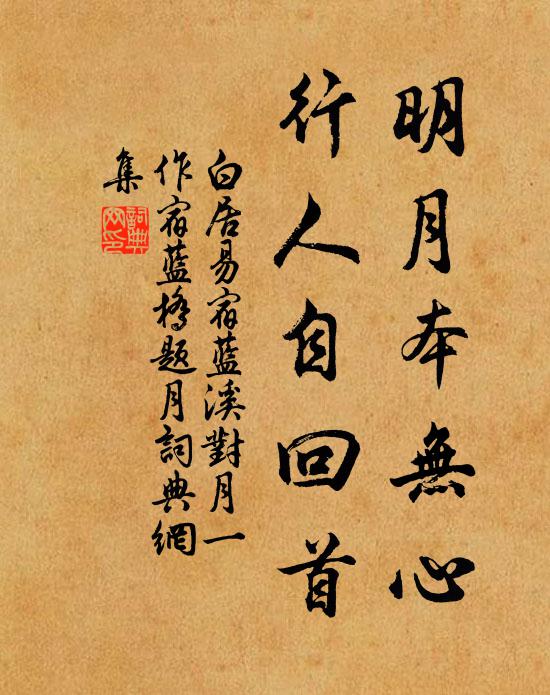 明月本無心
行人自回首
白居易宿蓝溪對月一
作宿蓝橋題月詞典網
集
詞典
网印